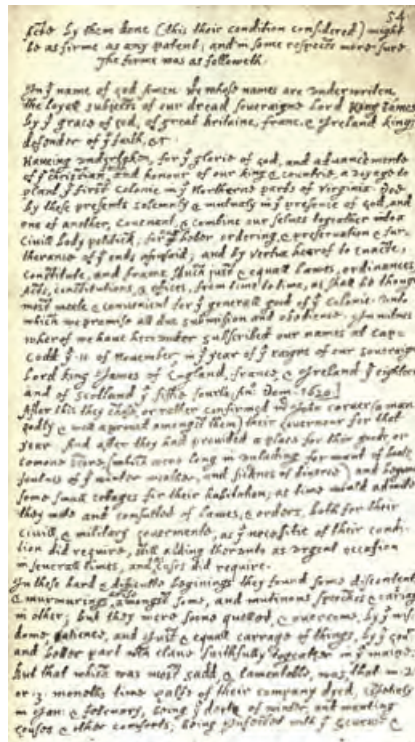 54
facte by them done (this their condition considered) might
be as firme as any patent; and in some respects more sure.
The forme was as followeth.
In yͤ name of god Amen. We whose names are underwriten,
the loyall subjects of our dread soveraigne Lord King James
by yͤ grace of god, of great Britaine, franc, & Ireland king,
defender of yͤ faith, &c
Haveing undertaken, for yͤ glorie of god, and advancemente
of yͤ christian and honour of our king & countrie, a voyage to
plant yͤ first colonie in yͤ Northerne parts of Virginia. Doe
by these presents solemnly & mutualy in yͤ presence of god, and
one of another, covenant, & combine our selves togeather into a
Civill body politick; for better ordering, & preservation & fur-
therance of yͤ ends aforesaid; and by vertue hearof to enacte,
constitute, and frame such just & equall lawes, ordinances,
Acts, constitutions, & offices, from time to time, as shall be though
most meete & convenient for yͤ generall good of yͤ Colonie: unto
which we promise all due submission and obedience. In witnes
wherof we have hereunder subscribed our names at Cap-
Codd yͤ 11 of November, in yͤ year of yͤ raigne of our soveraigne
Lord king James of England, france, & Ireland yͤ eighteen
and of Scotland yͤ fiftie fourth. Ano: Dom. 1620.]
After this they chose, or rather confirmed mr John carver (a man
godly & well approved amongst them) their Governour for that
year. And after they had provided a place for their goods, or
comone store, (which were long in unlading for want of boats,
foulnes of yͤ winter weather, and sicknes of diverce) and begune
some small cotages for their habitation; as time would admitte
they mete and consulted of lawes, & orders, both for their
civill, & military Govermente, as yͤ necessitie of their condi-
tion did require, still adding therunto as urgent occasion
in severall times, and cases did require.
In these hard & difficulte beginings they found some discontents
& murmurings arise amongst some, and mutinous speeches & cariag
in other; but they were soone quelled, & overcome, by yͤ wis-
dome, patience, and just & equall carrage of things, by yͤ Gov
and better part wch clave faithfully togeather in yͤ maine.
But that which was most sadd, & lamentable, was, that in 2
or 3 moneths time halfe of their company dyed, espetialy
in Jan: & february, being yͤ depth of winter, and wanting
houses & other comforts; being infected with yͤ scurvie &